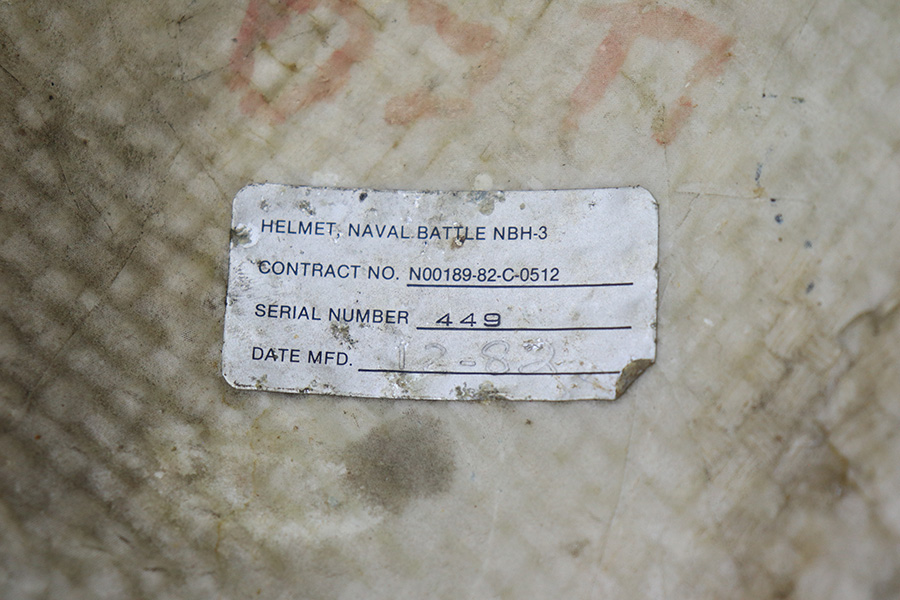 HELMET, NAVAL BATTLE NBH-3
CONTRACT NO. N00189-82-C-0512
SERIAL NUMBER 449
DATE MFD. 12-82